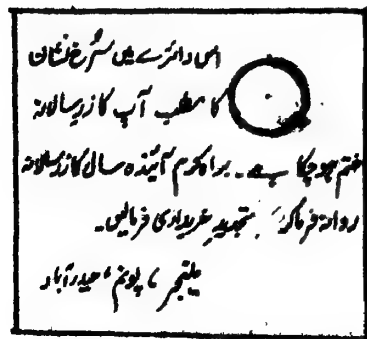 اس دائرے میں سُرخ نشان
کا مطلب آپ کا زرِ سالانہ
ختم ہوچکا ہے۔ براہ کرم آئندہ سال کا زرِ سالانہ
روانہ فرماکر تجدیدِ خریداری فرمالیں۔
مینجر، پونم، حیدرآباد